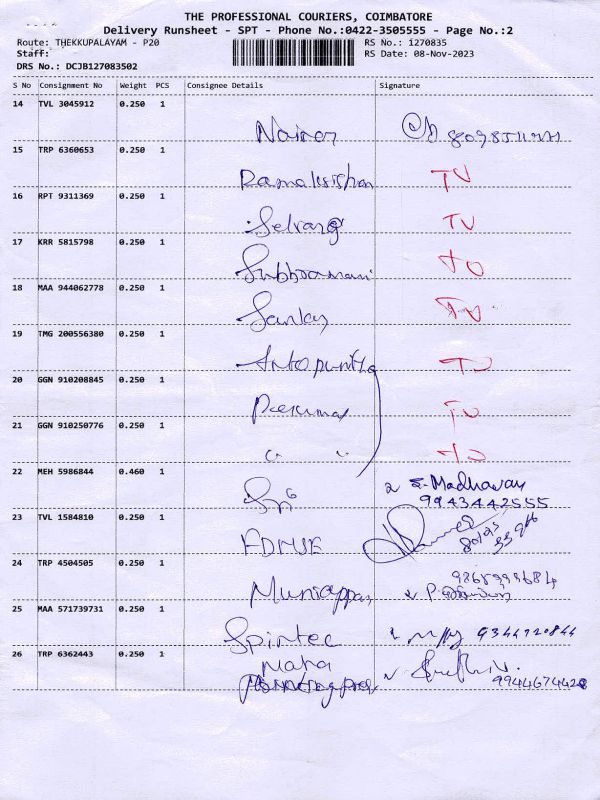 THE PROFESSIONAL COURIERS, COIMBATORE
Delivery Runsheet - SPT - Phone No.:0422-3505555 - Page No.:2
Route: THEKKUPALAYAM - P20 RS No.: 1270835
Staff: RS Date: 08-Nov-2023
DRS No.: DCJB127083502
S No Consignment No Weight PCS Consignee Details Signature
14 TVL 3045912 0.250 1
15 TRP 6360653 0.250 1
Ramakrishan TU
16 RPT 9311369 0.250 1
Selvaraj TU
17 KRR 5815798 0.250 1
Subbramani TU
18 MAA 944062778 0.250 1
TU
19 TMG 200556380 0.250 1
TU
20 GGN 910208845 0.250 1
Perumal TU
21 GGN 910250776 0.250 1
TU
22 MEH 5986844 0.460 1
S. Madhavan
9943442555
23 TVL 1584810 0.250 1
24 TRP 4504505 0.250 1
Muniappan
25 MAA 571739731 0.250 1
Spintec
26 TRP 6362443 0.250 1
Maha
9944674428